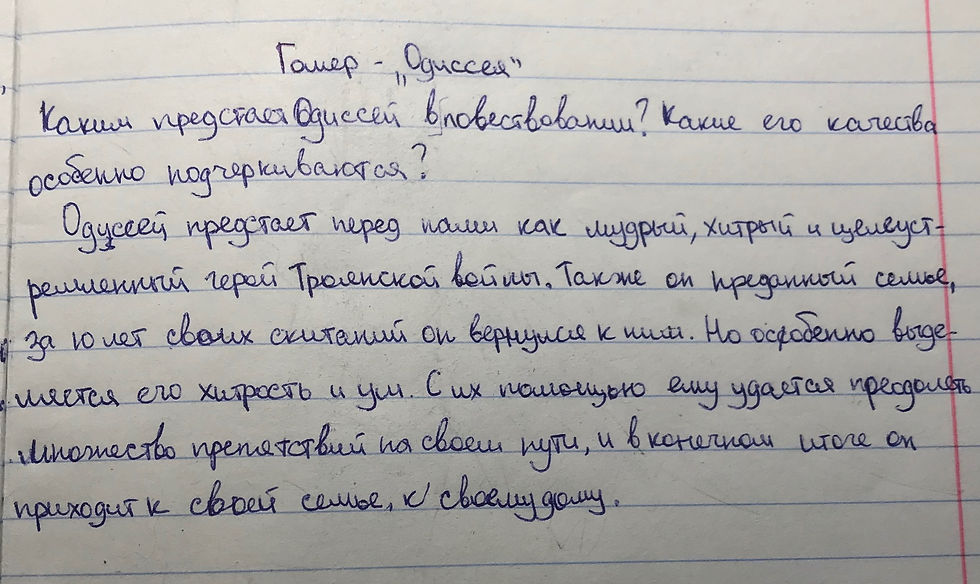 Гомер - „Одиссея"
Каким предстает Одиссей в повествовании? Какие его качества
особенно подчеркиваются?
Одуссей предстает перед нами как мудрый, хитрый и целеуст-
ремленный герой Троянской войны. Также он преданный семье,
за 10 лет своих скитаний он вернулся к ним. Но особенно выде-
ляется его хитрость и ум. С их помощью ему удается преодолеть
множество препятствий на своем пути, и в конечном итоге он
приходит к своей семье, к своему дому.